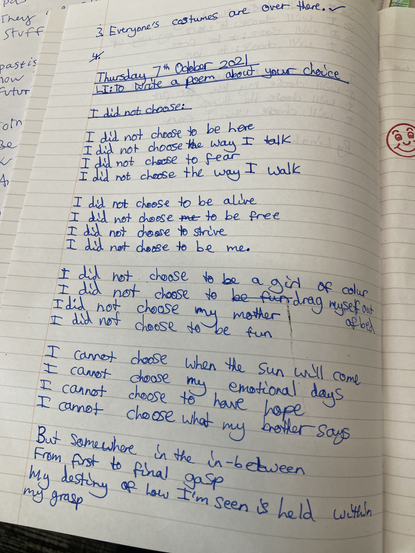 They
Stuff
past is
how
Futur
Be
3. Everyone's costumes are over there.
4.
Thursday, 7th October 2021
LI: To write a poem about your choice
I did not choose:
I did not choose to be here
I did not choose the way I talk
I did not choose to fear
I did not choose the way I walk
I did not choose to be alive
I did not choose me to be free
I did not choose to strive
I did not choose to be me.
I did not choose to be a girl of colur
I did not choose to be fun drag myself out of bed
I did not choose my mother
I did not choose to be fun
I cannot choose when the sun will come
I cannot choose my emotional days
I cannot choose to have hope
I cannot choose what my brother says
But somewhere in the in-between
From first to final gasp
My destiny of how I'm seen is held within
my grasp